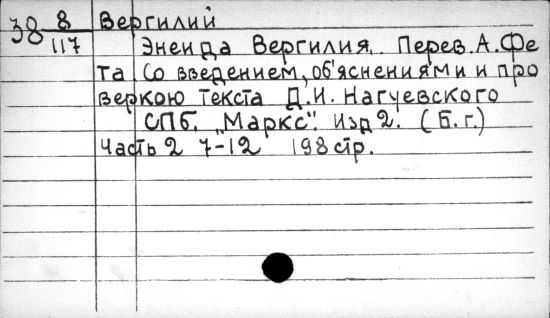 38 8/117 Вергилий
Энеида Вергилия. Перев. А. Фе
та Со введением, об'яснениями и про
веркою текста Д. И. Нагуевского
СПб. „Маркс". Изд 2. (Б. г.)
Часть 2 7-12 198 стр.